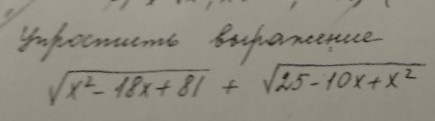 Упростить выражение
√x² - 18x + 81 + √25 - 10x + x²